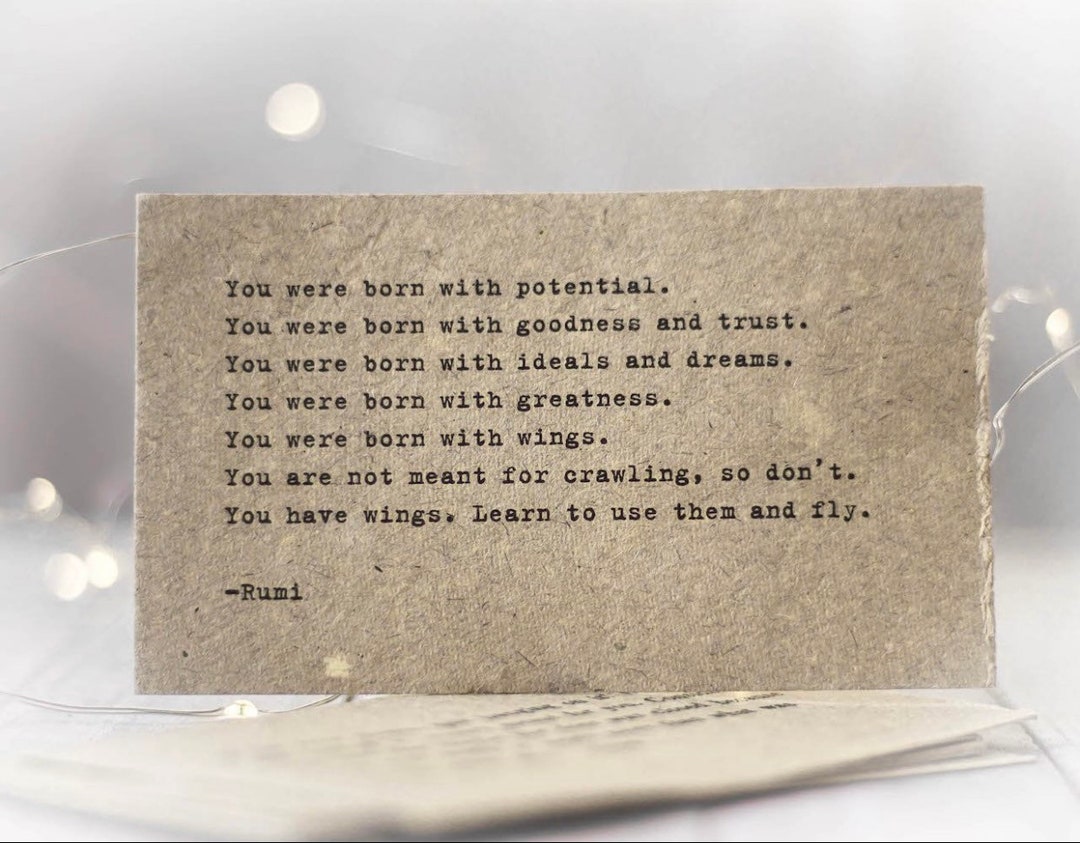 You were born with potential.
You were born with goodness and trust.
You were born with ideals and dreams.
You were born with greatness.
You were born with wings.
You are not meant for crawling, so don't.
You have wings. Learn to use them and fly.
-Rumi